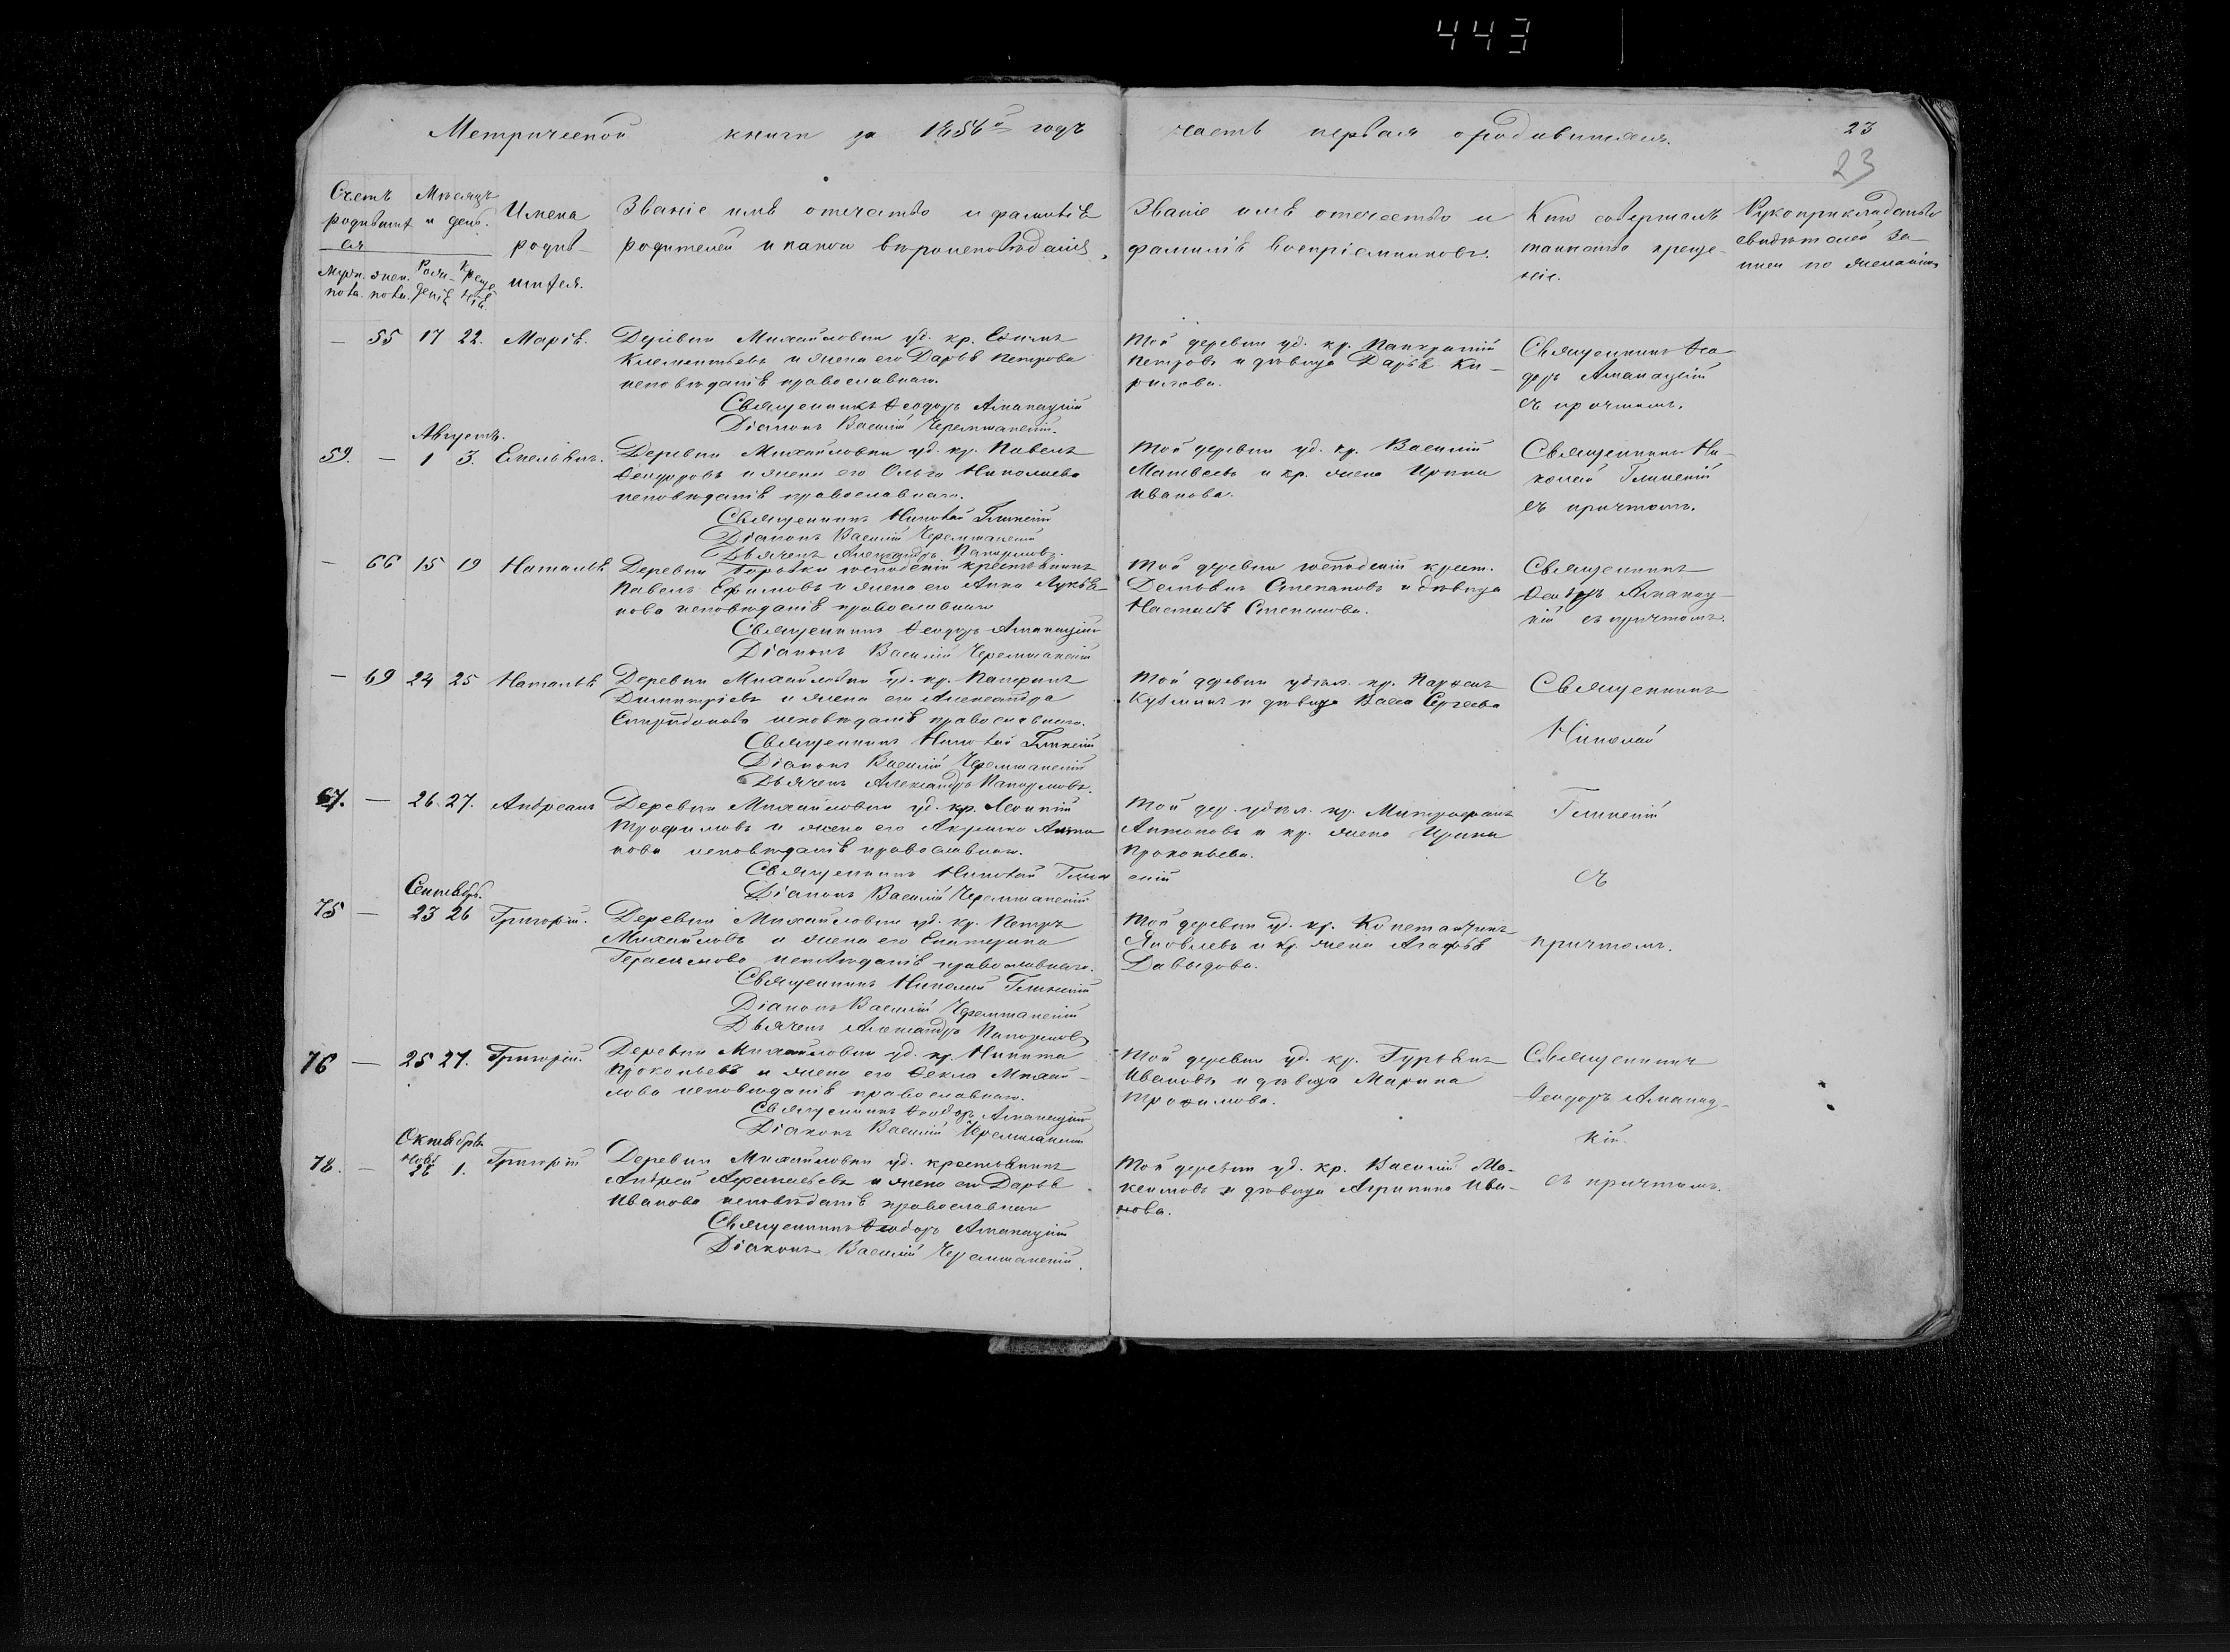 443
Метрической книги за 1856й годъ часть первая о родившихся.
23
23
Счетъ родившихся
Мѣсяцъ и день.
Имена родившихся.
Званіе имя отчество и фамилія
родителей и какои вѣроисповѣданія,
Званіе имя отчество и
фамилія воспріемниковъ.
Кто совершалъ
таинство креще-
нія.
Рукоприкладство
свидѣтелей за-
писи по желанію
Муж. пола.
жен. пола.
Рожденія
Крещенія
— 55 17 22. Марія.
Деревни Михайловки уд. кр. Ефимъ
Клементьевъ и жена его Дарья Петрова
исповѣданія православнаго.
Священникъ Ѳеодоръ Аманацкій
Діаконъ Василій Черемшанскій.
Той деревни уд. кр. Панкратій
Петровъ и дѣвица Дарья Ки-
рилова.
Священникъ Ѳео-
доръ Аманацкій
съ причтомъ.
Августъ.
59. — 1 3. Емельянъ.
Деревни Михайловки уд. кр. Павелъ
Ѳеодоровъ и жена его Ольга Николаева
исповѣданія православнаго.
Священникъ Николай Глинскій
Діаконъ Василій Черемшанскій
Дьячекъ Александръ
Той деревни уд. кр. Василій
Матвеевъ и кр. жена Ирина
Иванова.
Священникъ Ни-
колай Глинскій
съ причтомъ.
— 66 15 19 Наталья
Деревни господскій крестьянинъ
Павелъ Ефимовъ и жена его Анна Лукья-
нова исповѣданія православнаго
Священникъ Ѳеодоръ Аманацкій
Діаконъ Василій Черемшанскій
Той деревни господскій крест.
Демьянъ Степановъ и дѣвица
Настасья Степанова.
Священникъ
Ѳеодоръ Аманац-
кій съ причтомъ.
— 69 24 25 Наталья
Деревни Михайловки уд. кр.
Димитріевъ и жена его Александра
Спиридонова исповѣданія православнаго.
Священникъ Николай Глинскій
Діаконъ Василій Черемшанскій
Дьячекъ Александръ
Той деревни удѣл. кр. Парфенъ
Кузминъ и дѣвица Васса Сергеева
Священникъ
Николай
67. — 26. 27. Андреанъ
Деревни Михайловки уд. кр. Леонтій
Трофимовъ и жена его Акулина
нова исповѣданія православнаго.
Священникъ Николай Глин скій
Діаконъ Василій Черемшанскій
Той дер. удѣл. кр. Митрофанъ
Антоновъ и кр. жена Ирина
Прокопьева.
Глинскій
съ
Сентябрь.
75 — 23 26 Григорій.
Деревни Михайловки уд. кр. Петръ
Михайловъ и жена его Екатерина
Герасимова исповѣданія православнаго.
Священникъ Николай Глинскій
Діаконъ Василій Черемшанскій
Дьячекъ Александръ
Той деревни уд. кр. Константинъ
Яковлевъ и кр. жена Агафья
Давыдова.
причтомъ.
76 — 25 27. Григорій.
Деревни Михайловки уд. кр. Никита
Прокопьевъ и жена его Ѳекла Михай-
лова исповѣданія православнаго.
Священникъ Ѳеодоръ Аманацкій
Діаконъ Василій Черемшанскій
Той деревни уд. кр. Гурьянъ
Ивановъ и дѣвица Марина
Трофимова.
Священникъ
Ѳеодоръ Аманац-
кій
Октябрь
Нояб
78. — 28 1. Григорій
Деревни Михайловки уд. крестьянинъ
Андрей Афанасьевъ и жена его Дарья
Иванова исповѣданія православнаго
Священникъ Ѳеодоръ Аманацкій
Діаконъ Василій Черемшанскій.
Той деревни уд. кр. Василій Ма-
ксимовъ и дѣвица Агрипина Ива-
нова.
съ причтомъ.